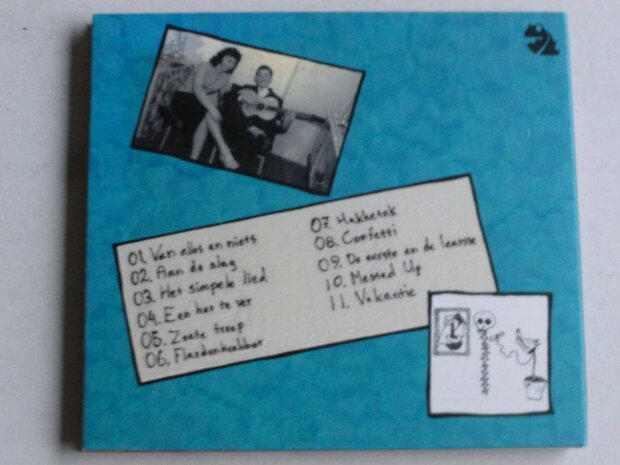 01. Van alles en niets
02. Aan de slag
03. Het simpele lied
04. Een hor te ver
05. Zoete troep
06. Flardenkrabber
07. Hakketak
08. Confetti
09. De eerste en de laatste
10. Messed Up
11. Vakantie